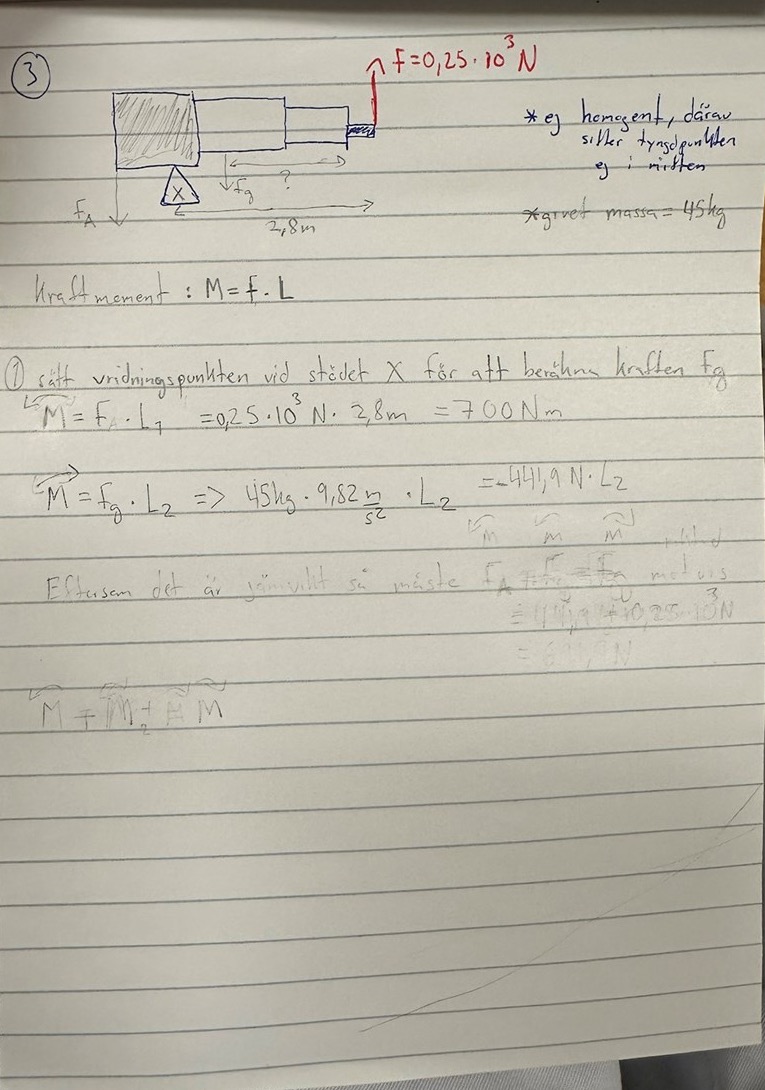 3
F=0,25·10³ N
* ej homogent, därav
sitter tyngdpunkten
ej i mitten
X
Fg
?
FA
2,8m
*givet massa= 45kg
Kraftmoment : M= F·L
① sätt vridningspunkten vid stödet X för att beräkna kraften Fg
M = F · L₁ =0,25·10³ N· 2,8m =700Nm
M = Fg · L₂ => 45kg · 9,82 m/s² · L₂ =-441,9 N·L₂
M M M
Eftersom det är jämvikt så måste FA Fg moturs
= 441,9 + 0,25·10³N
=
M = M₂ + M